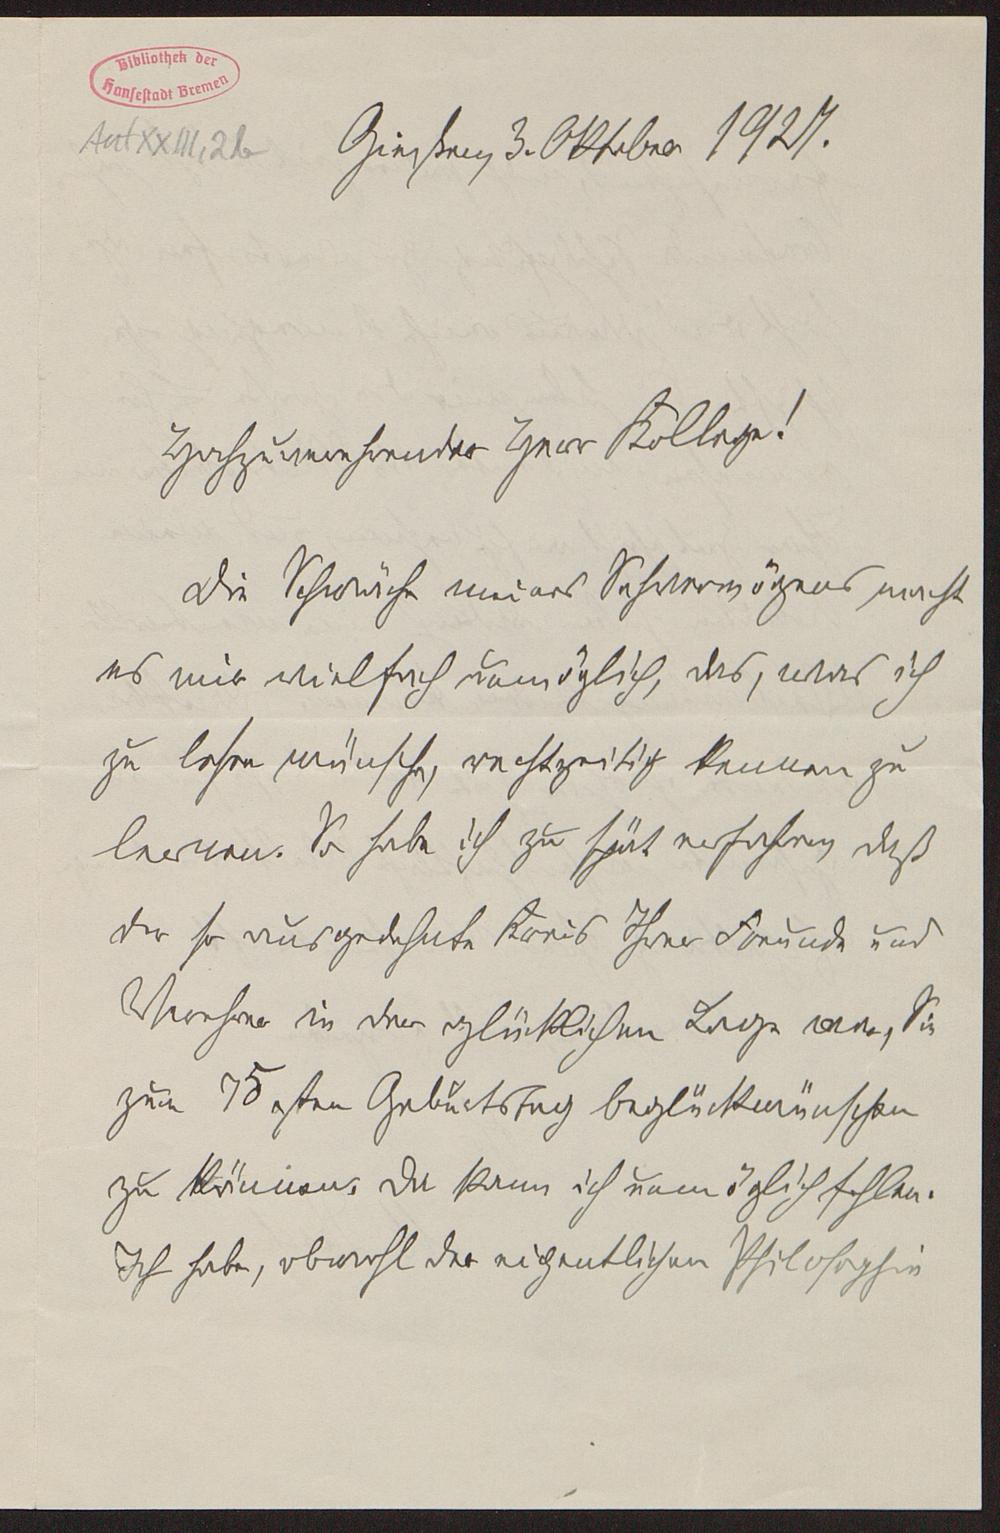 Bibliothek der
Hansestadt Bremen
Aut XXIII, 2b
3. Oktober 1927.
Hochzuverehrender Herr Kollege!
Die Schwäche meines Sehvermögens macht
es mir vielfach unmöglich, das, was ich
zu lesen wünsche, rechtzeitig kennen zu
lernen. So habe ich zu spät erfahren, daß
der so ausgedehnte Kreis Ihrer Freunde und
Verehrer in der glücklichen Lage war, Sie
zum 75sten Geburtstag beglückwünschen
zu können. Da kann ich unmöglich fehlen.
Ich habe, obwohl der eigentlichen Philosophie